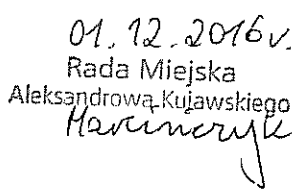 01.12.2016r.
Rada Miejska
Aleksandrowa Kujawskiego
Marcinczyk